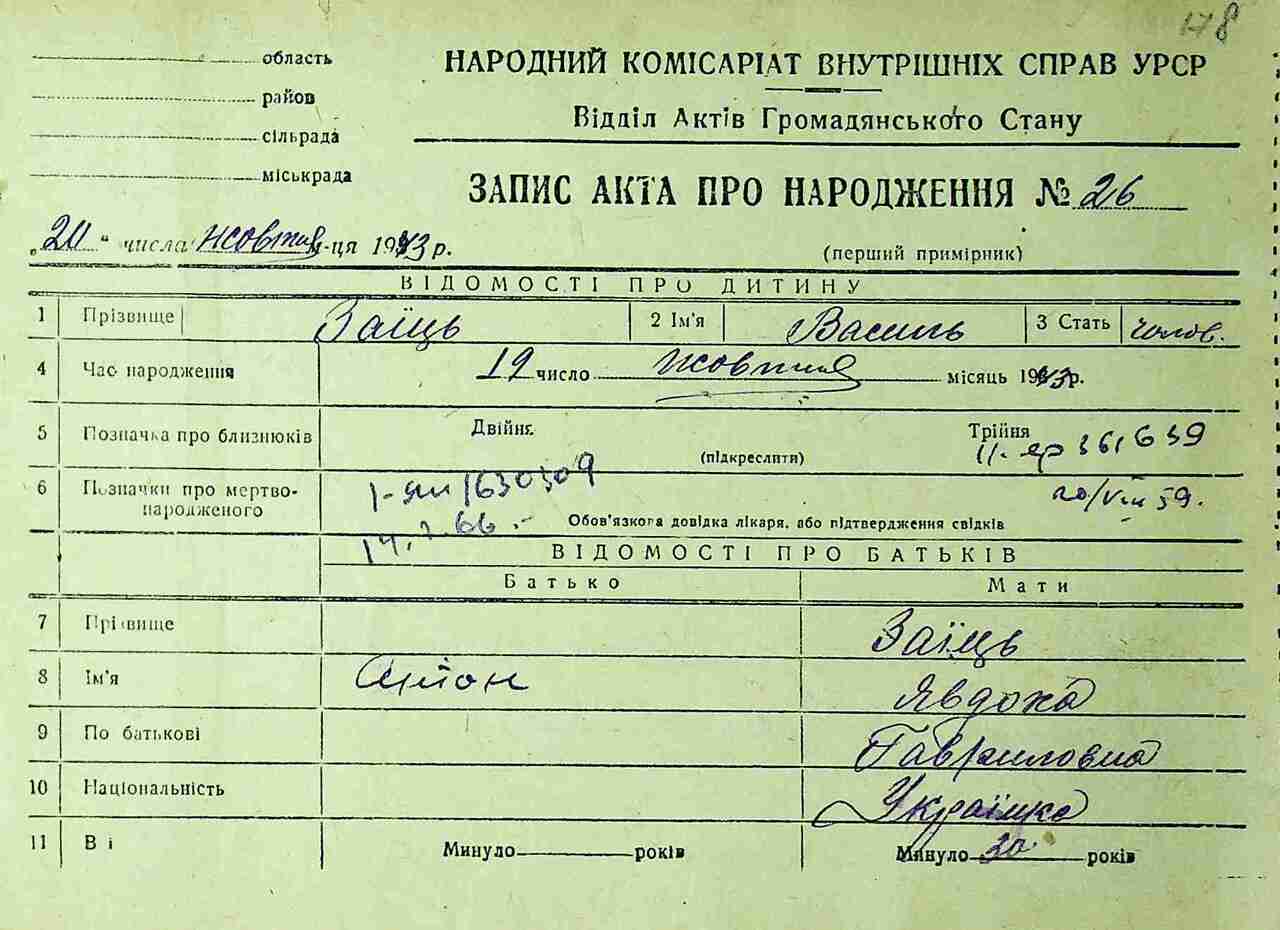 178
область
район
сільрада
міськрада
НАРОДНИЙ КОМІСАРІАТ ВНУТРІШНІХ СПРАВ УРСР
Відділ Актів Громадянського Стану
ЗАПИС АКТА ПРО НАРОДЖЕННЯ № 26
„20“ числа жовтня м-ця 1943 р.
(перший примірник)
ВІДОМОСТІ ПРО ДИТИНУ
1 Прізвище Заїць 2 Ім'я Василь 3 Стать чолов.
4 Час народження 19 число жовтня місяць 1943 р.
5 Позначка про близнюків Двійня (підкреслити) Трійня
II-яр 361639
6 Позначки про мертво-народженого I-ян 1630309 20/VIII 59.
14.1.66.- Обов'язкова довідка лікаря, або підтвердження свідків
ВІДОМОСТІ ПРО БАТЬКІВ
Батько Мати
7 Прізвище Заїць
8 Ім'я Явдоха
9 По батькові Гавриловна
10 Національність Українка
11 Вік Минуло років Минуло 30 років